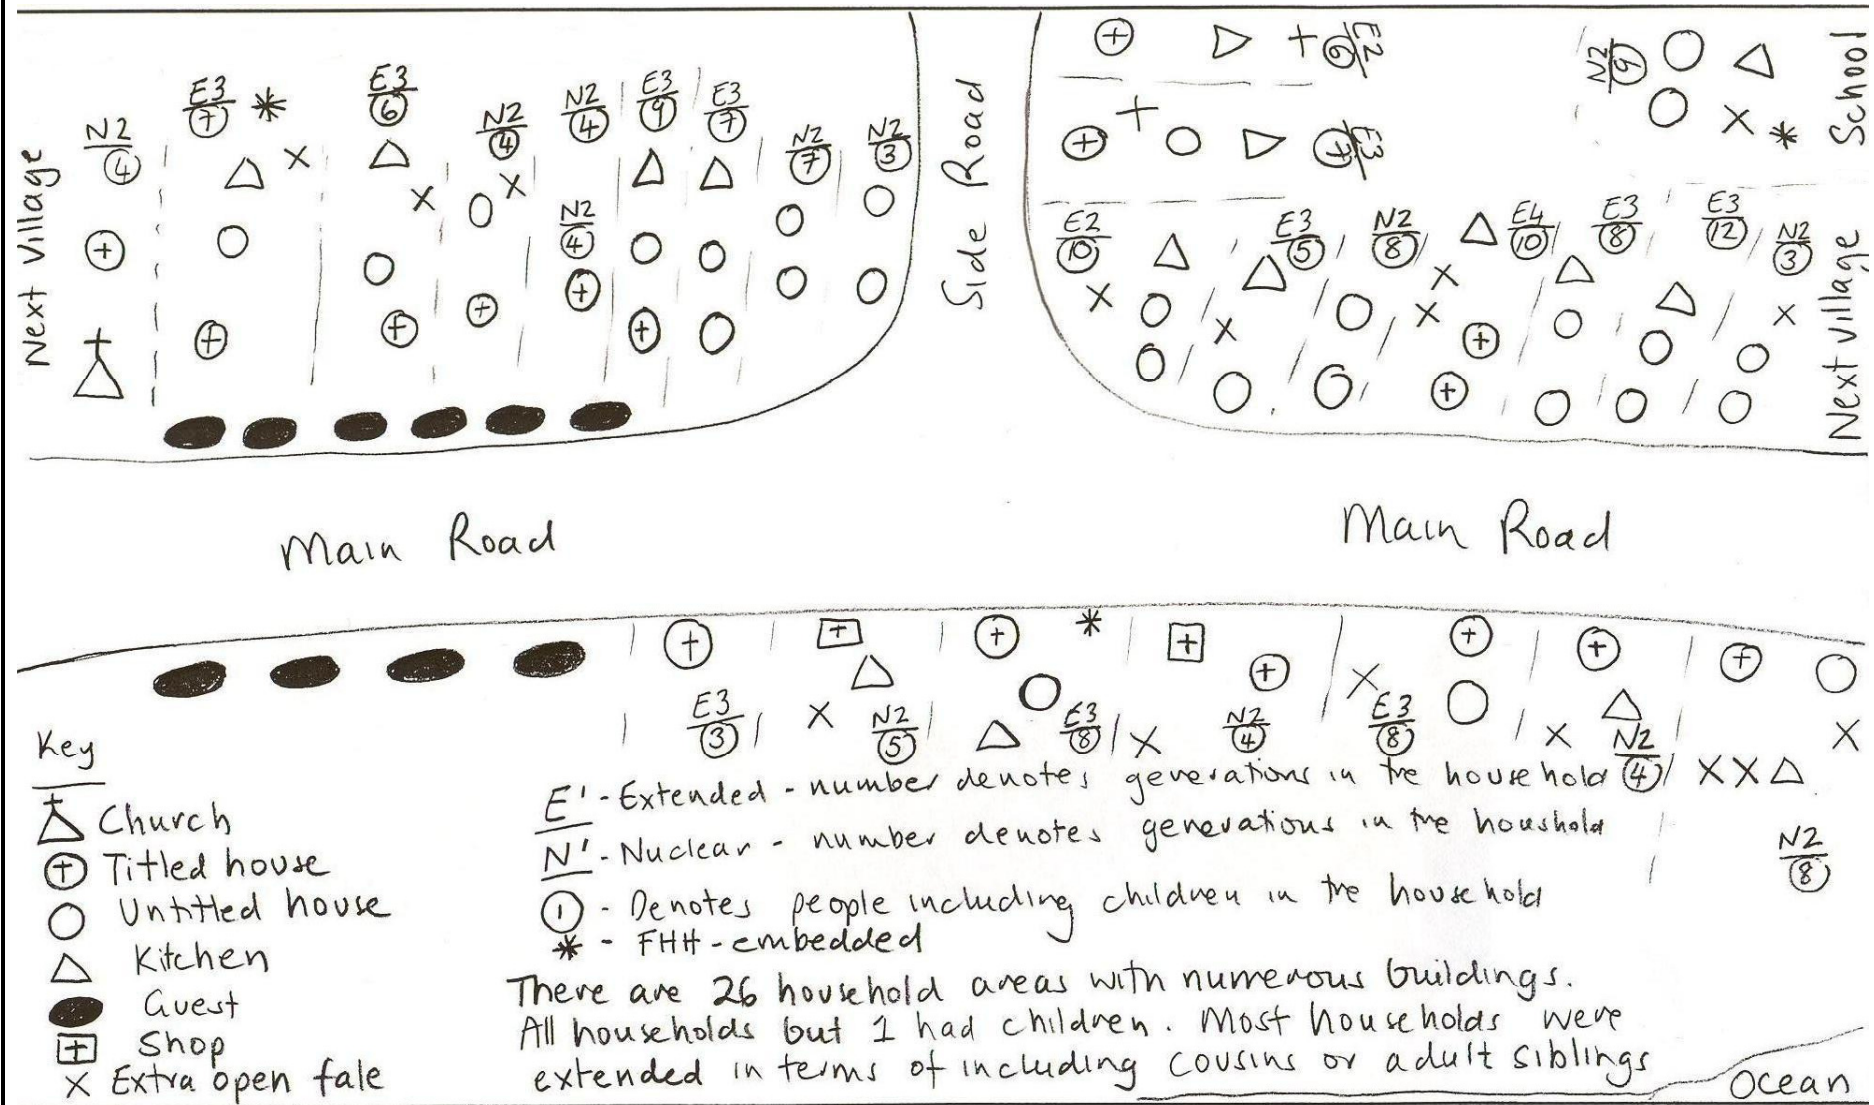 N2
4
E3
7
E3
6
N2
4
N2
4
N2
4
E3
9
E3
7
N2
7
N2
3
Next Village
Side Road
E2
6
E3
7
N2
9
School
E2
10
E3
5
N2
8
E4
10
E3
8
E3
12
N2
3
Next village
Main Road
Main Road
E3
3
N2
5
E3
8
N2
4
E3
8
N2
4
N2
8
Key
Church
Titled house
Untitled house
Kitchen
Guest
Shop
X Extra open fale
E' - Extended - number denotes generations in the household
N' - Nuclear - number denotes generations in the houshold
1 - Denotes people including children in the household
* - FHH - embedded
There are 26 household areas with numerous buildings.
All households but 1 had children. Most households were
extended in terms of including cousins or adult siblings
Ocean